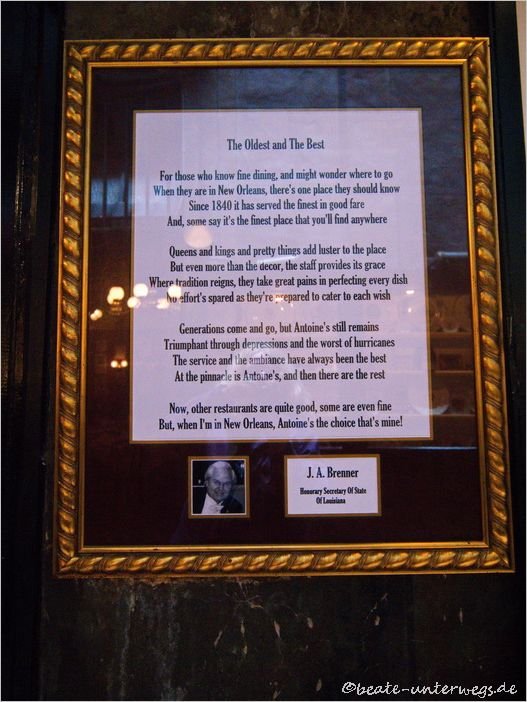 The Oldest and The Best
For those who know fine dining, and might wonder where to go
When they are in New Orleans, there's one place they should know
Since 1840 it has served the finest in good fare
And, some say it's the finest place that you'll find anywhere
Queens and kings and pretty things add luster to the place
But even more than the decor, the staff provides its grace
Where tradition reigns, they take great pains in perfecting every dish
No effort's spared as they're prepared to cater to each wish
Generations come and go, but Antoine's still remains
Triumphant through depressions and the worst of hurricanes
The service and the ambiance have always been the best
At the pinnacle is Antoine's, and then there are the rest
Now, other restaurants are quite good, some are even fine
But, when I'm in New Orleans, Antoine's the choice that's mine!
J. A. Brenner
Honorary Secretary Of State
Of Louisiana
©beate-unterwegs.de